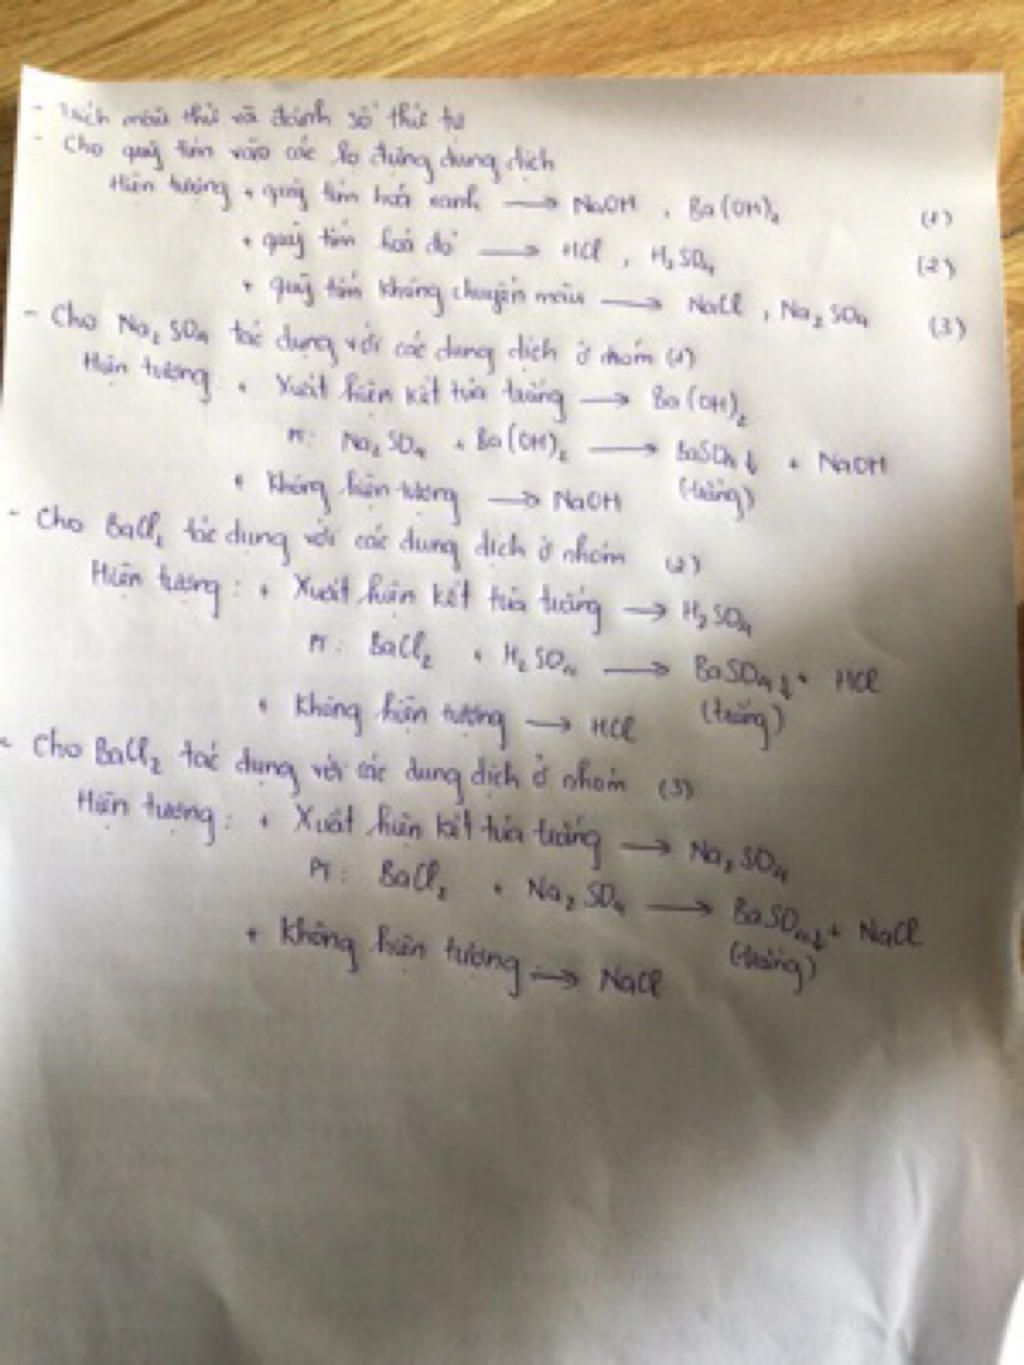 - Trích mẫu thử và đánh số thứ tự
- Cho quỳ tím vào các lọ đựng dung dịch
Hiện tượng + quỳ tím hoá xanh → NaOH , Ba(OH)₂ (1)
+ quỳ tím hoá đỏ → HCl , H₂SO₄ (2)
+ quỳ tím không chuyển màu → NaCl , Na₂SO₄ (3)
- Cho Na₂SO₄ tác dụng với các dung dịch ở nhóm (1)
Hiện tượng : + Xuất hiện kết tủa trắng → Ba(OH)₂
PT: Na₂SO₄ + Ba(OH)₂ → BaSO₄↓ + NaOH
(trắng)
+ Không hiện tượng → NaOH
- Cho BaCl₂ tác dụng với các dung dịch ở nhóm (2)
Hiện tượng : + Xuất hiện kết tủa trắng → H₂SO₄
PT: BaCl₂ + H₂SO₄ → BaSO₄↓ + HCl
(trắng)
+ Không hiện tượng → HCl
- Cho BaCl₂ tác dụng với các dung dịch ở nhóm (3)
Hiện tượng : + Xuất hiện kết tủa trắng → Na₂SO₄
PT: BaCl₂ + Na₂SO₄ → BaSO₄↓ + NaCl
(trắng)
+ Không hiện tượng → NaCl